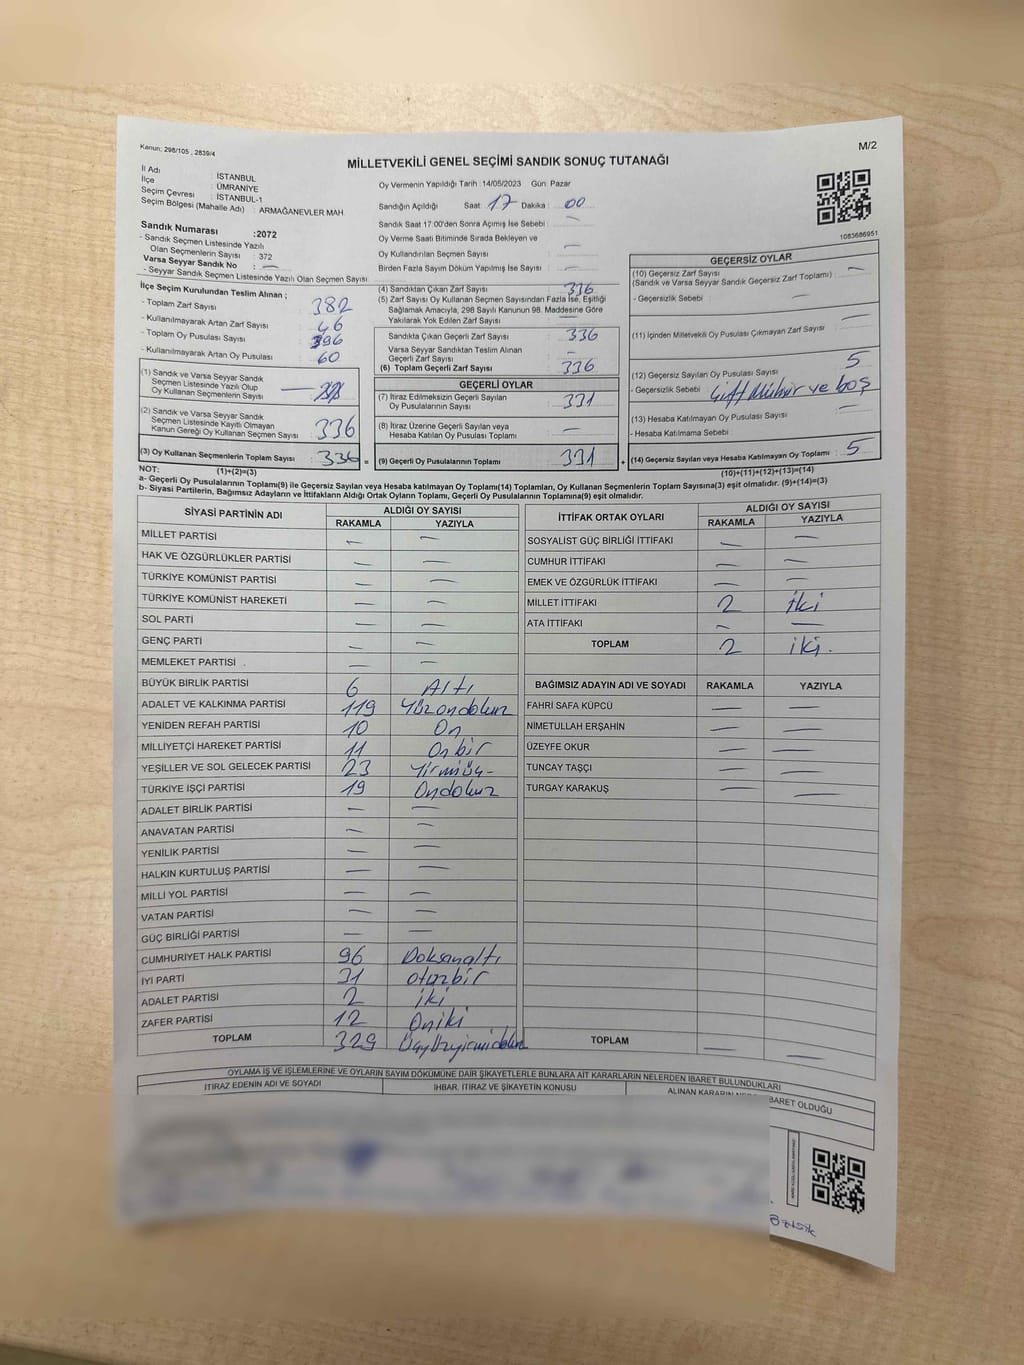 Kanun: 298/105 , 2839/4
M/2
MİLLETVEKİLİ GENEL SEÇİMİ SANDIK SONUÇ TUTANAĞI
İl Adı : İSTANBUL
İlçe : ÜMRANİYE
Seçim Çevresi : İSTANBUL-1
Seçim Bölgesi (Mahalle Adı) : ARMAĞANEVLER MAH.
Sandık Numarası :2072
- Sandık Seçmen Listesinde Yazılı
Olan Seçmenlerin Sayısı : 372
Varsa Seyyar Sandık No : —
- Seyyar Sandık Seçmen Listesinde Yazılı Olan Seçmen Sayısı
Oy Vermenin Yapıldığı Tarih :14/05/2023 Gün: Pazar
Sandığın Açıldığı Saat: 17 Dakika : 00
Sandık Saat 17:00'den Sonra Açımış İse Sebebi : —
Oy Verme Saati Bitiminde Sırada Bekleyen ve
Oy Kullandırılan Seçmen Sayısı : —
Birden Fazla Sayım Döküm Yapılmış İse Sayısı : —
1083686951
İlçe Seçim Kurulundan Teslim Alınan ;
- Toplam Zarf Sayısı : 382
- Kullanılmayarak Artan Zarf Sayısı : 46
- Toplam Oy Pusulası Sayısı : 396
- Kullanılmayarak Artan Oy Pusulası : 60
(1) Sandık ve Varsa Seyyar Sandık
Seçmen Listesinde Yazılı Olup
Oy Kullanan Seçmenlerin Sayısı :
(2) Sandık ve Varsa Seyyar Sandık
Seçmen Listesinde Kayıtlı Olmayan
Kanun Gereği Oy Kullanan Seçmen Sayısı : 336
(3) Oy Kullanan Seçmenlerin Toplam Sayısı : 336 =
(4) Sandıktan Çıkan Zarf Sayısı : 336
(5) Zarf Sayısı Oy Kullanan Seçmen Sayısından Fazla İse, Eşitliği
Sağlamak Amacıyla, 298 Sayılı Kanunun 98. Maddesine Göre
Yakılarak Yok Edilen Zarf Sayısı : —
Sandıkta Çıkan Geçerli Zarf Sayısı : 336
Varsa Seyyar Sandıktan Teslim Alınan
Geçerli Zarf Sayısı : —
(6) Toplam Geçerli Zarf Sayısı : 336
GEÇERLİ OYLAR
(7) İtiraz Edilmeksizin Geçerli Sayılan
Oy Pusulalarının Sayısı : 331
(8) İtiraz Üzerine Geçerli Sayılan veya
Hesaba Katılan Oy Pusulası Toplamı : —
(9) Geçerli Oy Pusulalarının Toplamı : 331 +
GEÇERSİZ OYLAR
(10) Geçersiz Zarf Sayısı : —
(Sandık ve Varsa Seyyar Sandık Geçersiz Zarf Toplamı)
- Geçersizlik Sebebi : —
(11) İçinden Milletvekili Oy Pusulası Çıkmayan Zarf Sayısı : —
(12) Geçersiz Sayılan Oy Pusulası Sayısı : 5
- Geçersizlik Sebebi : Çift Mühür ve boş
(13) Hesaba Katılmayan Oy Pusulası Sayısı : —
- Hesaba Katılmama Sebebi : —
(14) Geçersiz Sayılan veya Hesaba Katılmayan Oy Toplamı : 5
NOT: (1)+(2)=(3)
(10)+(11)+(12)+(13)=(14)
a- Geçerli Oy Pusulalarının Toplamı(9) ile Geçersiz Sayılan veya Hesaba katılmayan Oy Toplamı(14) Toplamları, Oy Kullanan Seçmenlerin Toplam Sayısına(3) eşit olmalıdır. (9)+(14)=(3)
b- Siyasi Partilerin, Bağımsız Adayların ve İttifakların Aldığı Ortak Oyların Toplamı, Geçerli Oy Pusulalarının Toplamına(9) eşit olmalıdır.
SİYASİ PARTİNİN ADI ALDIĞI OY SAYISI
RAKAMLA YAZIYLA
MİLLET PARTİSİ — —
HAK VE ÖZGÜRLÜKLER PARTİSİ — —
TÜRKİYE KOMÜNİST PARTİSİ — —
TÜRKİYE KOMÜNİST HAREKETİ — —
SOL PARTİ — —
GENÇ PARTİ — —
MEMLEKET PARTİSİ — —
BÜYÜK BİRLİK PARTİSİ 6 Altı
ADALET VE KALKINMA PARTİSİ 119 Yüzondokuz
YENİDEN REFAH PARTİSİ 10 On
MİLLİYETÇİ HAREKET PARTİSİ 11 Onbir
YEŞİLLER VE SOL GELECEK PARTİSİ 23 Yirmiüç
TÜRKİYE İŞÇİ PARTİSİ 19 Ondokuz
ADALET BİRLİK PARTİSİ — —
ANAVATAN PARTİSİ — —
YENİLİK PARTİSİ — —
HALKIN KURTULUŞ PARTİSİ — —
MİLLİ YOL PARTİSİ — —
VATAN PARTİSİ — —
GÜÇ BİRLİĞİ PARTİSİ — —
CUMHURİYET HALK PARTİSİ 96 Doksanaltı
İYİ PARTİ 31 otuzbir
ADALET PARTİSİ 2 iki
ZAFER PARTİSİ 12 Oniki
TOPLAM 329 Üçyüzyirmidokuz
İTTİFAK ORTAK OYLARI ALDIĞI OY SAYISI
RAKAMLA YAZIYLA
SOSYALİST GÜÇ BİRLİĞİ İTTİFAKI — —
CUMHUR İTTİFAKI — —
EMEK VE ÖZGÜRLÜK İTTİFAKI — —
MİLLET İTTİFAKI 2 İki
ATA İTTİFAKI — —
TOPLAM 2 iki.
BAĞIMSIZ ADAYIN ADI VE SOYADI RAKAMLA YAZIYLA
FAHRİ SAFA KÜPCÜ — —
NİMETULLAH ERŞAHİN — —
ÜZEYFE OKUR — —
TUNCAY TAŞÇI — —
TURGAY KARAKUŞ — —
TOPLAM — —
OYLAMA İŞ VE İŞLEMLERİNE VE OYLARIN SAYIM DÖKÜMÜNE DAİR ŞİKAYETLERLE BUNLARA AİT KARARLARIN NELERDEN İBARET BULUNDUKLARI
İTİRAZ EDENİN ADI VE SOYADI İHBAR, İTİRAZ VE ŞİKAYETİN KONUSU ALINAN KARARIN NE BARET OLDUĞU